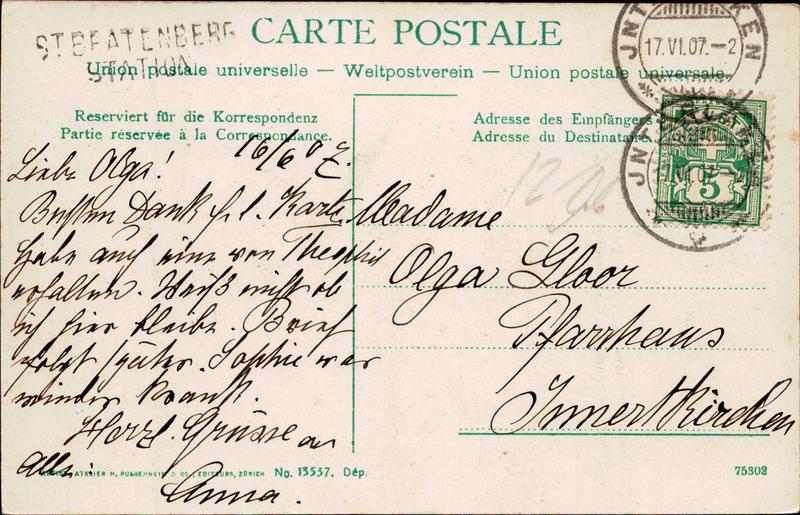 ST.BEATENBERG
STATION
CARTE POSTALE
JNTERLAKEN
17.VI.07.-2
Union postale universelle — Weltpostverein — Union postale universale
Reserviert für die Korrespondenz
Partie réservée à la Correspondance.
Adresse des Empfängers
Adresse du Destinataire
HELVETIA
5
16/6 07.
Liebe Olga!
Besten Dank f. l. Karte
habe auch eine von Theophil
erhalten. Weiß nicht ob
ich hier bleibe. Brief
folgt später. Sophie war
wieder krank.
Herzl. Grüsse an
alle.
Anna.
Madame
Olga Gloor
Pfarrhaus
Innertkirchen
ATELIER H. GUGGENHEIM & CO., EDITEURS, ZÜRICH No. 13537. Dép.
75302